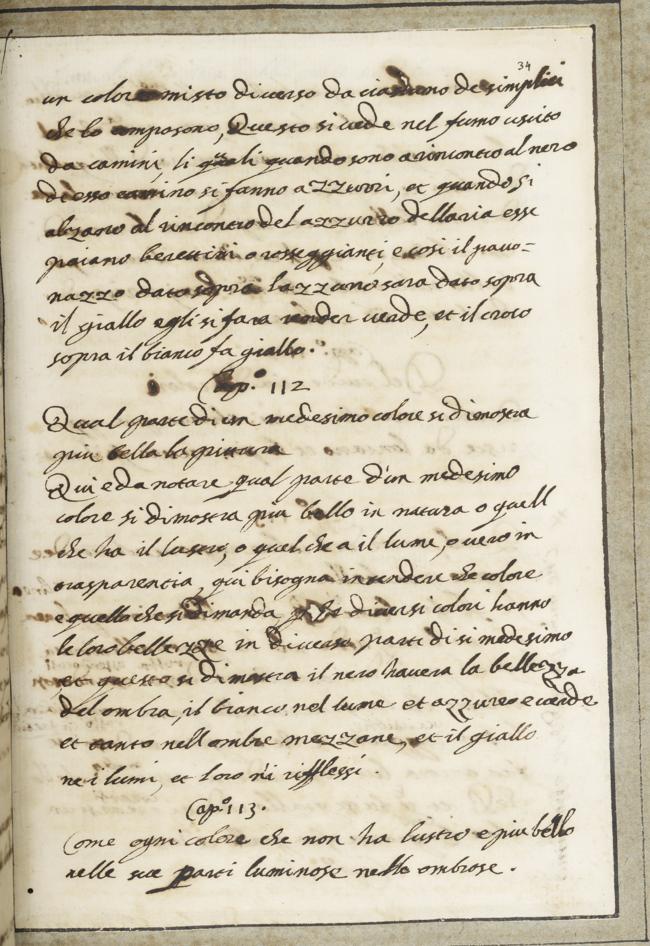 34
un colore misto diverso da ciascuno de simplici
che lo composono, Questo si vede nel fumo uscito
da camini, li quali quando sono a rincontro al nero
di esso camino si fanno azzurri, et quando si
alzano al rincontro del azzurro dellaria esse
paiano berettini o rosseggianti, e cosi il pavo=
nazzo dato sopra lazzuro sara dato sopra
il giallo egli si fara render verde, et il croco
sopra il bianco fa giallo.
Cap.º 112
Qual parte di un medesimo colore si dimostra
piu bella la pittura
Qui e da notare qual parte d'un medesimo
colore si dimostra piu bello in natura o quell
che ha il lustro, o quel che a il lume, o vero in
trasparentia, qui bisogna intendere che colore
e quello che si dimanda diversi colori hanno
le loro bellezze in diversa parte di si medesimo
et questo si dimostra il nero havera la bellezza
del ombra, il bianco nel lume et azzurro e verde
et tanto nell ombre mezzane, et il giallo
ne i lumi, et loro ni rifflessi.
Cap.º 113.
Come ogni colore che non ha lustro e piu bello
nelle sue parti luminose nelle ombrose.